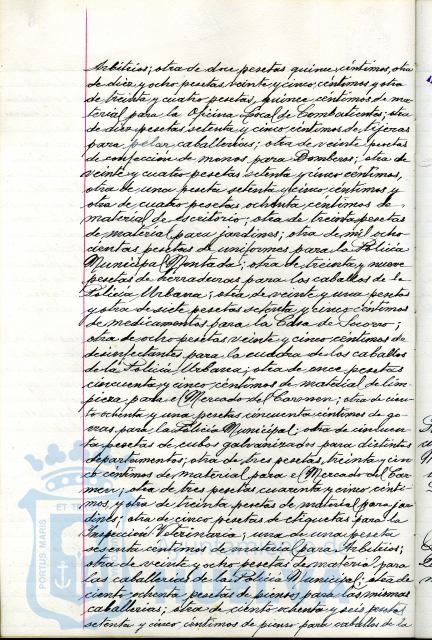 Arbitrios; otra de doce pesetas quince céntimos, otra
de diez y ocho pesetas veinte y cinco céntimos y otra
de treinta y cuatro pesetas, quince céntimos de ma-
terial para la Oficina Local de Combatientes; otra
de diez pesetas setenta y cinco céntimos de tijeras
para pelar caballerias; otra de veinte pesetas
de confección de monos para Bomberos; otra de
veinte y cuatro pesetas setenta y cinco céntimos,
otra de una peseta setenta y cinco céntimos y
otra de cuatro pesetas ochenta céntimos de
material de escritorio; otra de treinta pesetas
de material para jardines; otra de mil ocho-
cientas pesetas de uniformes para la Policia
Municipal Montada; otra de treinta y nueve
pesetas de herraduras para los caballos de la
Policia Urbana; otra de veinte y una pesetas
y otra de siete pesetas setenta y cinco céntimos
de medicamentos para la Casa de Socorro;
otra de ocho pesetas veinte y cinco céntimos de
desinfectantes para la cuadra de los caballos
de la Policia Urbana; otra de once pesetas
cincuenta y cinco céntimos de material de lim-
pieza para el Mercado del Carmen; otra de cien-
to ochenta y una pesetas cincuenta céntimos de go-
rras para la Policia Municipal; otra de cincuen-
ta pesetas de cubos galvanizados para distintos
departamentos; otra de tres pesetas, treinta y cin-
co céntimos de material para el Mercado del Car-
men; otra de tres pesetas cuarenta y cinco cénti-
mos, y otra de treinta pesetas de material para jar-
dines; otra de cinco pesetas de etiquetas para la
Inspección Veterinaria; una de una peseta
sesenta céntimos de material para Arbitrios;
otra de veinte y ocho pesetas de material para
las caballerias de la Policia Municipal; otra de
ciento ochenta pesetas de piensos para las mismas
caballerias; otra de ciento ochenta y seis pesetas
setenta y cinco céntimos de pienso para caballos de la
PORTUS MARIS
ET T